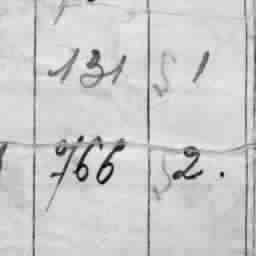 131 1
766 2.